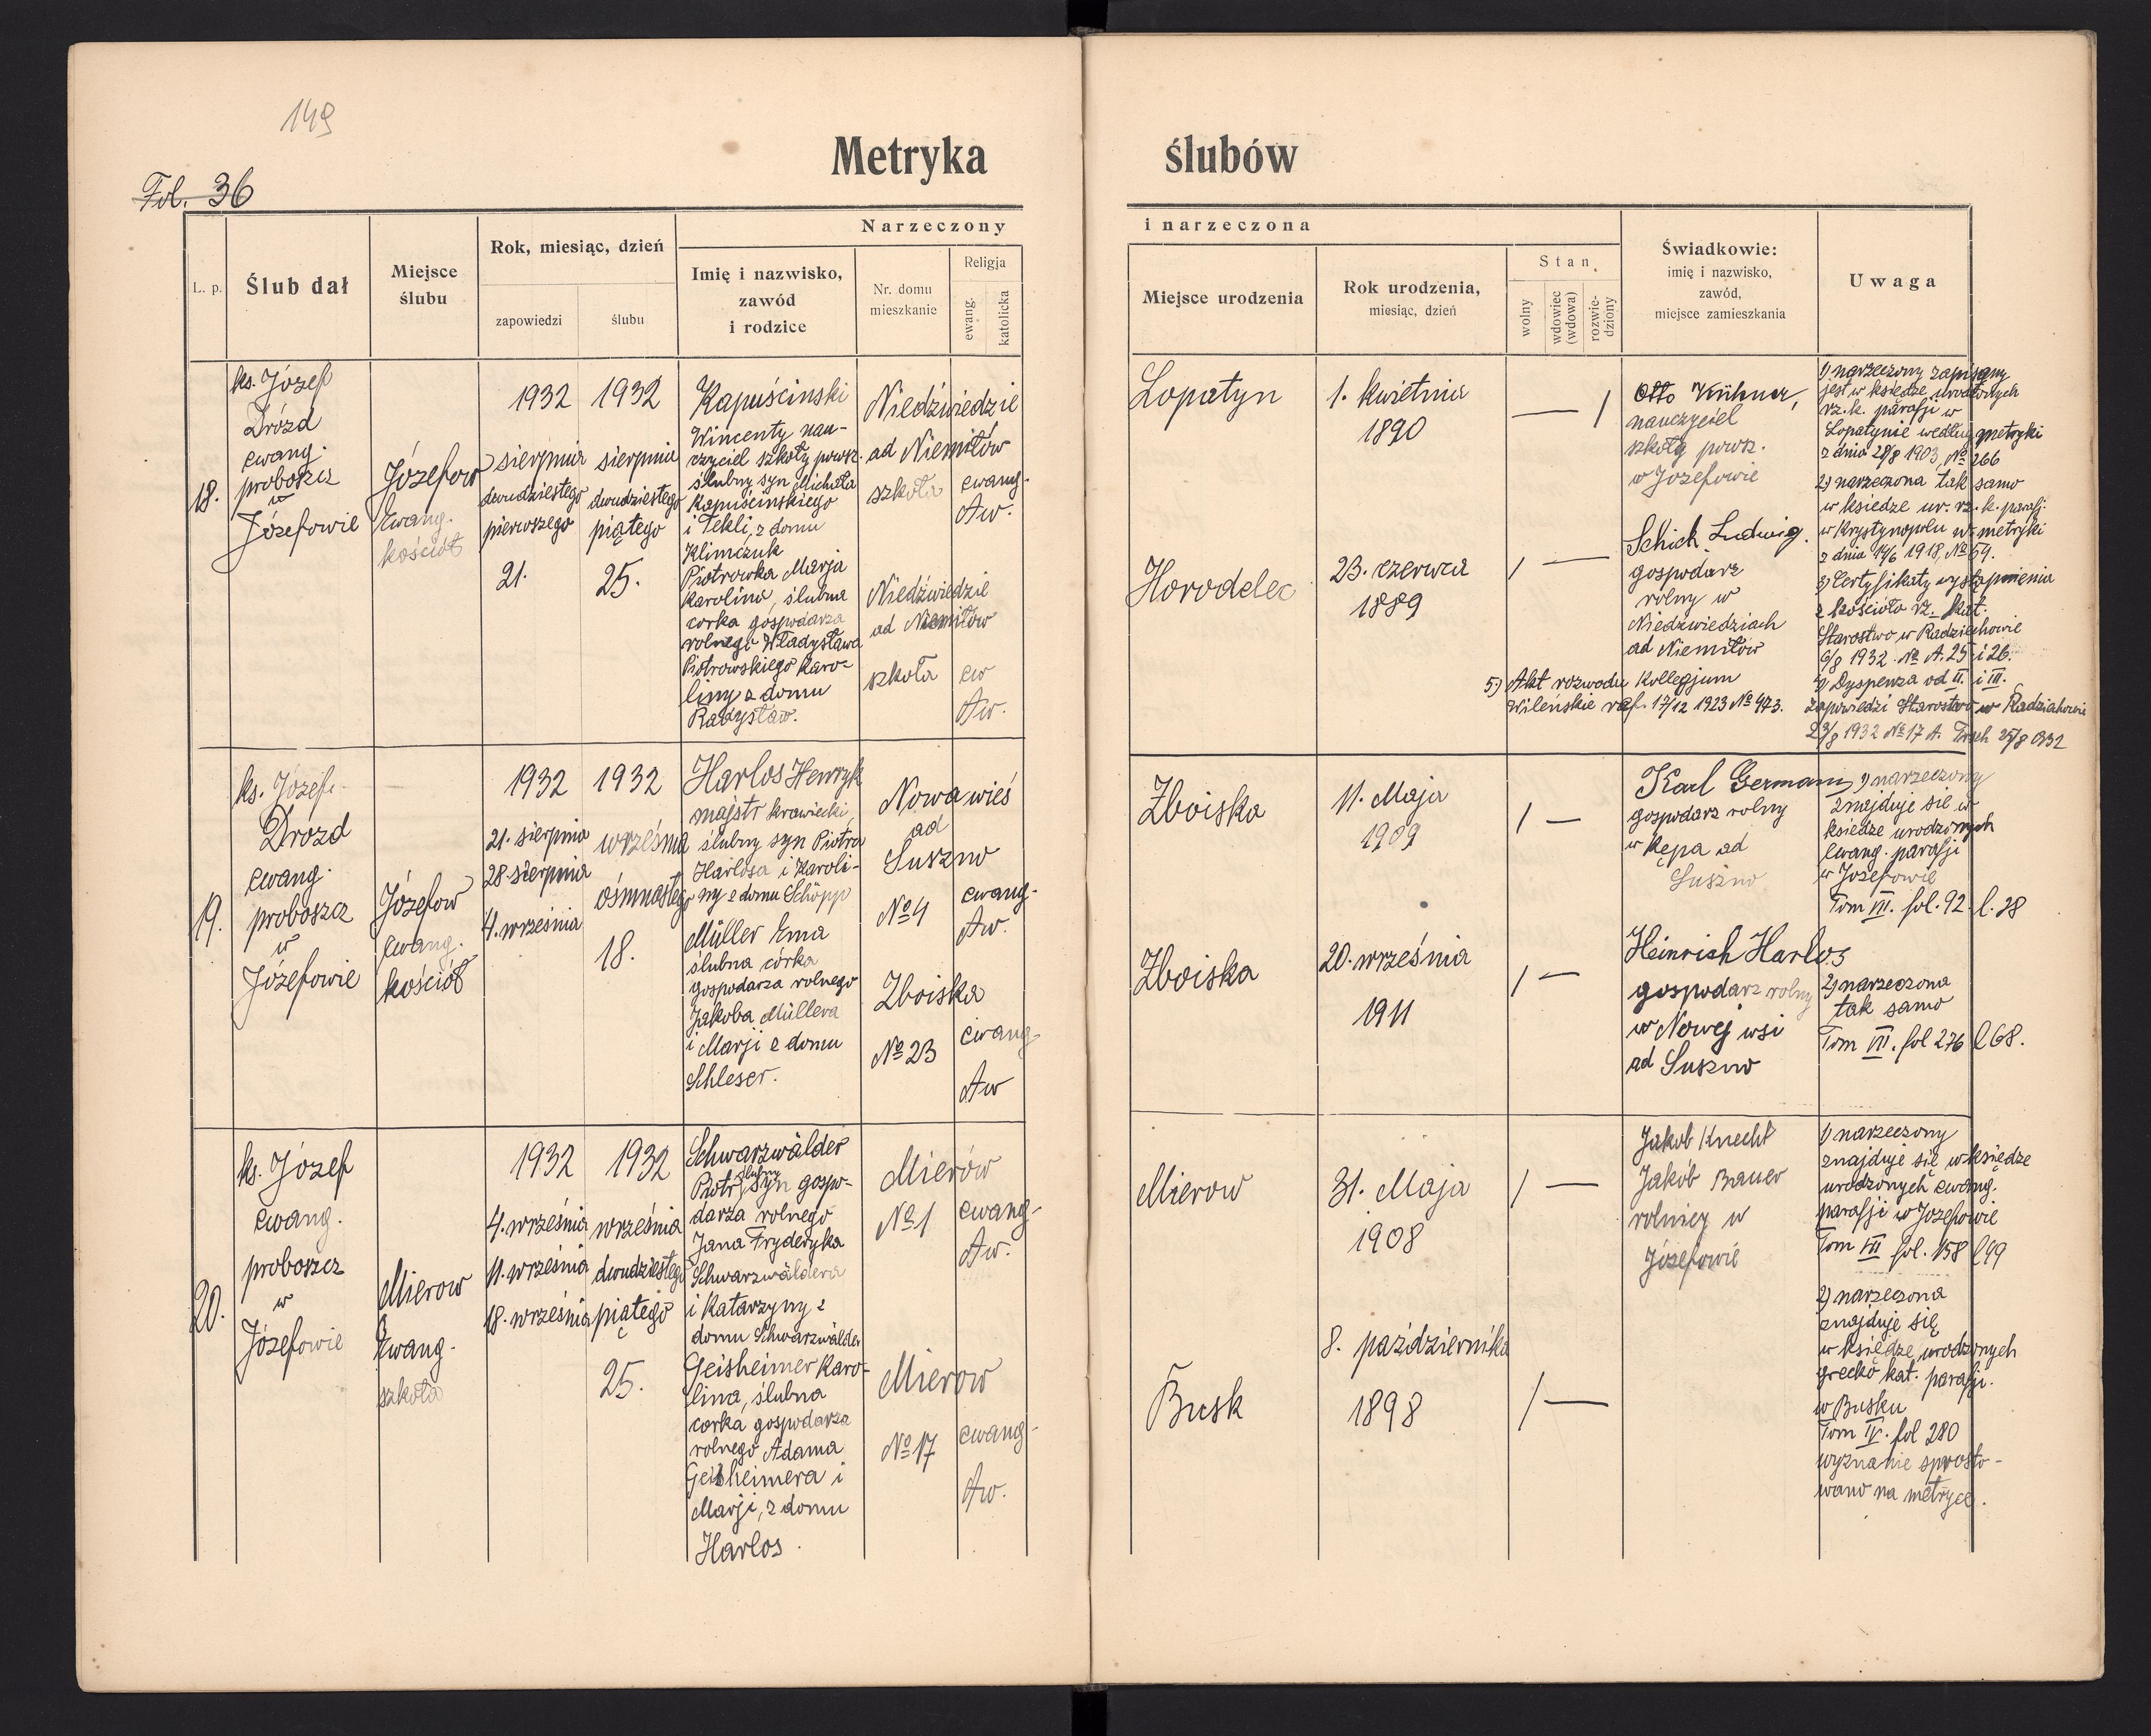 149
Metryka ślubów
Fol. 36
Narzeczony i narzeczona
L. p.
Ślub dał
Miejsce
ślubu
Rok, miesiąc, dzień
zapowiedzi
ślubu
Imię i nazwisko,
zawód
i rodzice
Nr. domu
mieszkanie
Religja
ewang.
katolicka
Miejsce urodzenia
Rok urodzenia,
miesiąc, dzień
Stan
wolny
wdowiec
(wdowa)
rozwie-
dziony
Świadkowie:
imię i nazwisko,
zawód,
miejsce zamieszkania
Uwaga
18.
ks. Józef
Drózd
ewang.
proboszcz
w
Józefowie
Józefow
Ewang.
kościół
1932
sierpnia
dwudziestego
pierwszego
21.
1932
sierpnia
dwudziestego
piątego
25.
Kapuścinski
Wincenty nau-
czyciel szkoły powsz.
ślubny syn Michała
Kapuścinskiego
i Tekli, z domu
Klimczuk
Piotrowska Marja
Karolina, ślubna
corka gospodarza
rolnego Władysława
Piotrowskiego Karo-
liny z domu
Radysław.
Niedźwiedzie
ad Niemiłów
szkoła
ewang.
Aw.
Niedźwiedzie
ad Niemiłów
szkoła
ew
Aw.
Lopatyn
1. kwietnia
1890
— 1
Horodelec
23. czerwca
1889
1 —
Otto Kühner,
nauczyciel
szkoły powsz.
w Józefowie
Schick Ludwig.
gospodarz
rolny w
Niedzwiedziach
ad Niemiłów
1) narzeczony zapisany
jest w księdze urodzonych
rz. k. parafji w
Lopatynie według metryki
z dnia 28/8 1903, No 266
2) narzeczona tak samo
w ksiedze ur. rz. k. parafj.
w Krystynopolu w. metryki
z dnia 14/6 1918, No 69.
3) Certyfikaty wystąpnienia
z kościoła rz. kat.
Starostwo w Radziechowie
6/8 1932 No A. 25 i 26.
4) Dyspenza od II. i III.
zapowiedzi Starostwo w Radziechowie
23/8 1932 No 17 A.
5.) Akt rozwodu Kollegjum
Wileńskie ref. 17/12 1923 No 473.
19.
ks. Józef
Drózd
ewang.
proboszcz
w
Józefowie
Józefow
ewang.
kościół
1932
21. sierpnia
28. sierpnia
4. wrzesnia
1932
wrześnıa
ośmnastego
18.
Harlos Henryk
majstr krawiecki,
ślubny syn Piotra
Harlosa i Karoli-
ny z domu Schöpp
Müller Ema
ślubna córka
gospodarza rolnego
Jakoba Müllera
i Marji z domu
Schleser.
Nowa wieś
ad
Suszno
No 4
ewang.
Aw.
Zboiska
No 23
ewang
Aw
Zboiska
11. Maja
1909
1 —
Zboiska
20. września
1911
1 —
Karl Germann
gospodarz rolny
w Kępa ad
Suszno
Heinrich Harlos
gospodarz rolny
w Nowej wsi
ad Suszno
1) narzeczony
znajduje sie w
ksiedze urodzonych
Ewang. parafji
w Jozefowie
Tom VII. fol. 92. l. 28
2) narzeczona
tak samo
Tom VII. fol 276 l 68.
20.
ks. Józef
ewang.
proboszcz
w
Józefowie
Mierow
Ewang.
szkoła
1932
4. września
11. września
18. września
1932
września
dwudziestego
piątego
25.
Schwarzwälder
Piotr ślubny syn gospo-
darza rolnego
Jana Fryderyka
Schwarzwäldera
i Katarzyny z
domu Schwarzwälder
Geisheimer Karo-
lina, ślubna
corka gospodarza
rolnego Adama
Geisheimera i
Marji, z domu
Harlos.
Mierów
No 1
ewang.
Aw.
Mierow
No 17
ewang.
Aw.
Mierow
31. Maja
1908
1 —
Busk
8. października
1898
1 —
Jakob Knecht
Jakób Bauer
rolnicy w
Józefowie
1) narzeczony
znajduje się w księdze
urodzonych ewang.
parafji w Jozefowie
Tom VII fol. 158 l 49
2) narzeczona
znajduje się
w księdze urodzonych
grecko kat. parafji.
w Busku
Tom IV. fol 280
wyznanie sprosto-
wano na metryce.